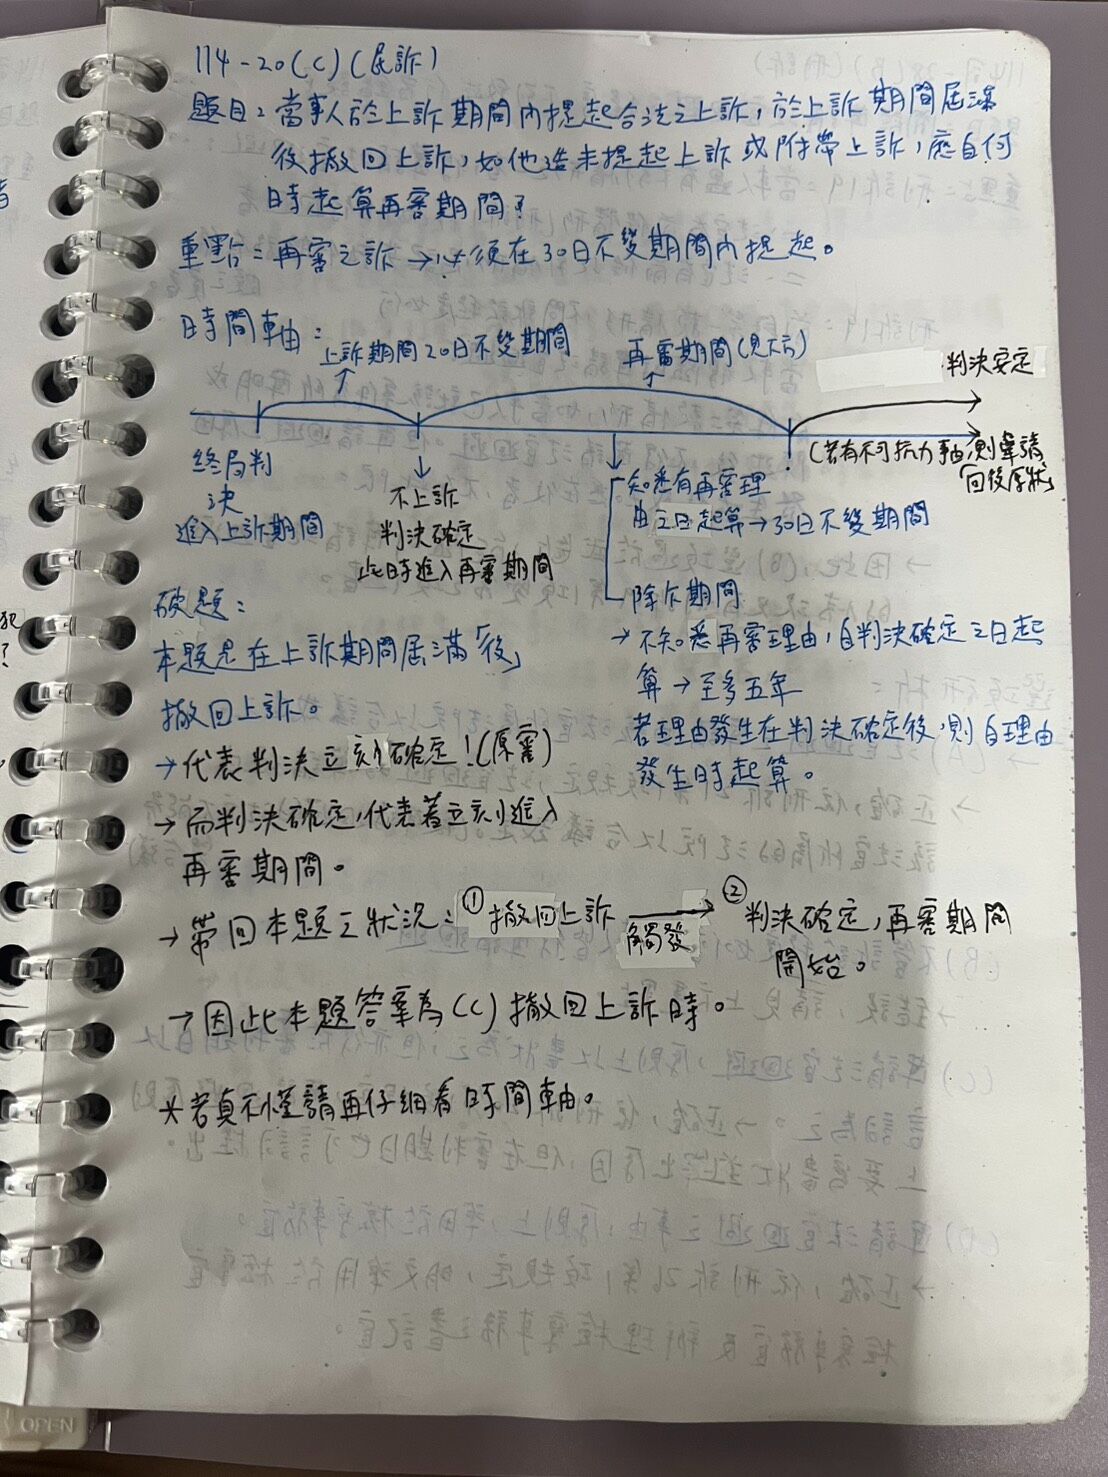 114-20(C)(民訴)
題目:當事人於上訴期間內提起合法之上訴,於上訴期間屆滿
後撤回上訴,如他造未提起上訴或附帶上訴,應自何
時起算再審期間?
重點:再審之訴→必須在30日不變期間內提起。
時間軸:
上訴期間20日不變期間
再審期間(見下方)
判決安定
終局判
決
進入上訴期間
不上訴
判決確定
此時進入再審期間
(若有不可抗力事由,則聲請
回復原狀)
知悉有再審理
由之日起算→30日不變期間
除斥期間
→不知悉再審理由,自判決確定之日起
算→至多五年
若理由發生在判決確定後,則自理由
發生時起算。
破題:
本題是在上訴期間屆滿「後」
撤回上訴。
→代表判決立刻確定!(原審)
→而判決確定,代表著立刻進入
再審期間。
→帶回本題之狀況:①撤回上訴 觸發 → ②判決確定,再審期間
開始。
→因此本題答案為(C)撤回上訴時。
*若真不懂請再仔細看時間軸。
OPEN